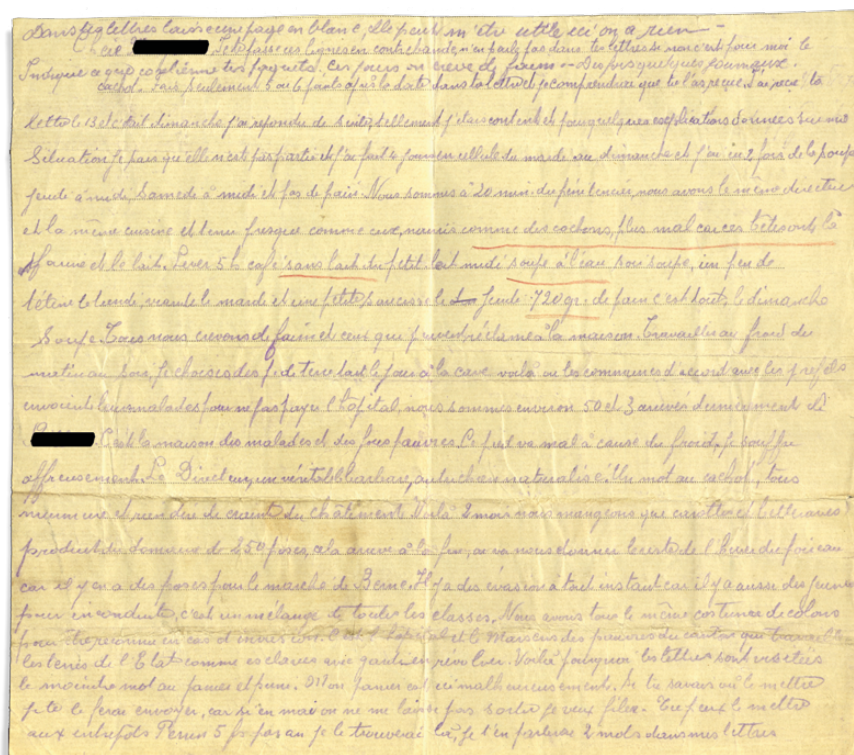 Dans tes lettres laisse une page en blanc, elle peut m'être utile ici on a rien
Je te passe ces lignes en contrebande, n'en parle pas dans tes lettres sinon c'est pour moi le
Indique ce que ces jours on crève de faim
cachot. seulement 5 ou 6 points après la date dans ta lettre et je comprendrai que tu l'as reçue. J'ai reçu ta
lettre le 13 et c'était dimanche j'ai répondu de suite, tellement j'étais content et pour quelques explications données sur ma
Situation je pense qu'elle n'est pas partie et j'ai fait le jour en cellule du mardi au dimanche et j'ai eu 2 fois de la soupe
jeudi à midi, Samedi à midi et pas de pain. Nous sommes à 20 min. du pénitencier, nous avons le même directeur
et la même cuisine et tenu presque comme eux, nourris comme des cochons, plus mal car ces bêtes ont la
farine et le lait. Lever 5 h café sans lait du petit lait midi soupe à l'eau soir soupe, un peu de
le lundi, viande le mardi et une petite saucisse le jeudi 720 gr. de pain c'est tout, le dimanche
Soupe. Tous nous crevons de faim et ceux qui peuvent à la maison. Travailler au froid du
matin au soir, je choisis des p. de terre tout le jour à la cave voilà où les communes d'accord avec les préfets
envoient leurs malades pour ne pas payer l'hôpital, nous sommes environ 50 et 3 arrivés dernièrement de
C'est la maison des malades et des fous pauvres. Le va mal à cause du froid, je souffre
affreusement. Le Directeur, un véritable barbare, autrichien naturalisé Un mot au cachot, tous
murmure et rien dire de crainte du châtiment. Voilà 2 mois nous mangeons que carottes et betteraves
produit du domaine de 250 poses, cela arrive à la fin, on va nous donner le reste de l'hiver du poireau
car il y en a des poses pour le marché de Berne. Il y a des évasions à tout instant car il y a aussi des
pour inconduite, c'est un mélange de toutes les classes. Nous avons tous le même costume de colons
pour être reconnu en cas d'évasion. l'hôpital et le des pauvres du canton que travaille
les terres de l'Etat comme esclaves avec gardien révolver. Voilà pourquoi les lettres sont visitées
le moindre mot au panier et punis. Mon panier est ici malheureusement. Si tu savais où le mettre
je te le ferai envoyer, car si en mai on ne me laisse pas sortir je veux filer. Tu peux le mettre
aux entrepôts Perrin 5 fr. par an je le trouverai là, je t'en parlerai 2 mots dans mes lettres